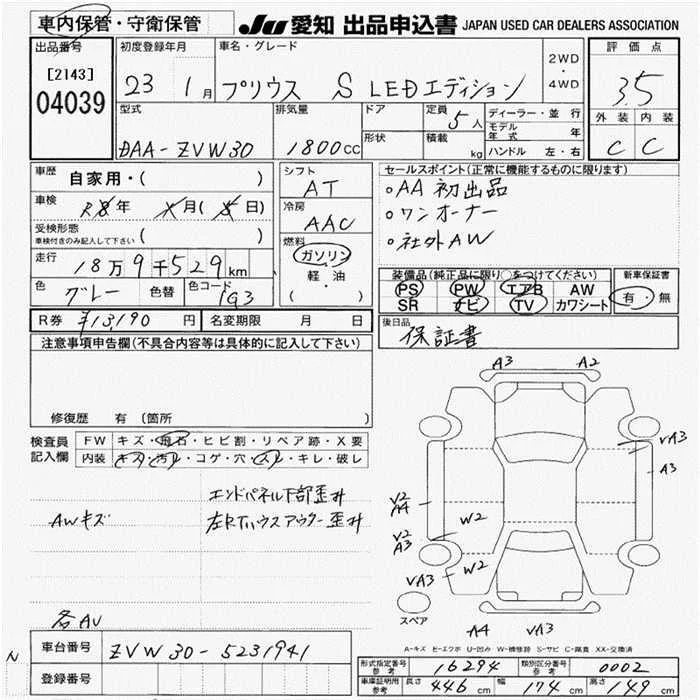 車内保管・守衛保管
JU 愛知 出品申込書 JAPAN USED CAR DEALERS ASSOCIATION
出品番号
[2143]
04039
初度登録年月
23 1月
車名・グレード
プリウス S LEDエディション
2WD
・
4WD
評価点
3.5
外装 内装
C C
型式
DAA-ZVW30
排気量
1800cc
ドア
形状
定員 5人
積載 kg
ディーラー・並行
モデル年式 年
ハンドル 左・右
車歴 自家用・( )
車検 R8年 月( 日)
受検形態
車検付きのみ記入して下さい ( )
走行 18万9千529km
色 グレー 色替 色コード 1G3
シフト
AT
冷房
AAC
燃料
ガソリン
軽・油
( )
セールスポイント(正常に機能するものに限ります)
○AA初出品
○ワンオーナー
○社外AW
装備品(純正品に限り○をつけてください)
PS PW エアB AW
SR ナビ TV カワシート
新車保証書
有・無
後日品
保証書
R券 ¥13,190円 名変期限 月 日
注意事項申告欄(不具合内容等は具体的に記入して下さい)
修復歴 有 (箇所 )
検査員記入欄
FW キズ・飛石・ヒビ割・リペア跡・X要
内装 キズ・汚れ・コゲ・穴・スレ・キレ・破レ
エンドパネル下部歪み
AWキズ
左RTハウスアウター歪み
各AU
A3 A2
VA3
A3
V2
A4
W2
V2
A3
VA3 W2
スペア
A4 VA3
A-キズ E-エクボ U-凹み W-補修跡 S-サビ C-腐食 XX-交換済
N
車台番号 ZVW30-5231941
登録番号
形式指定番号 参考 16294 類別区分番号 参考 0002
車庫証明用 参考 長さ 446cm 幅 174cm 高さ 149cm